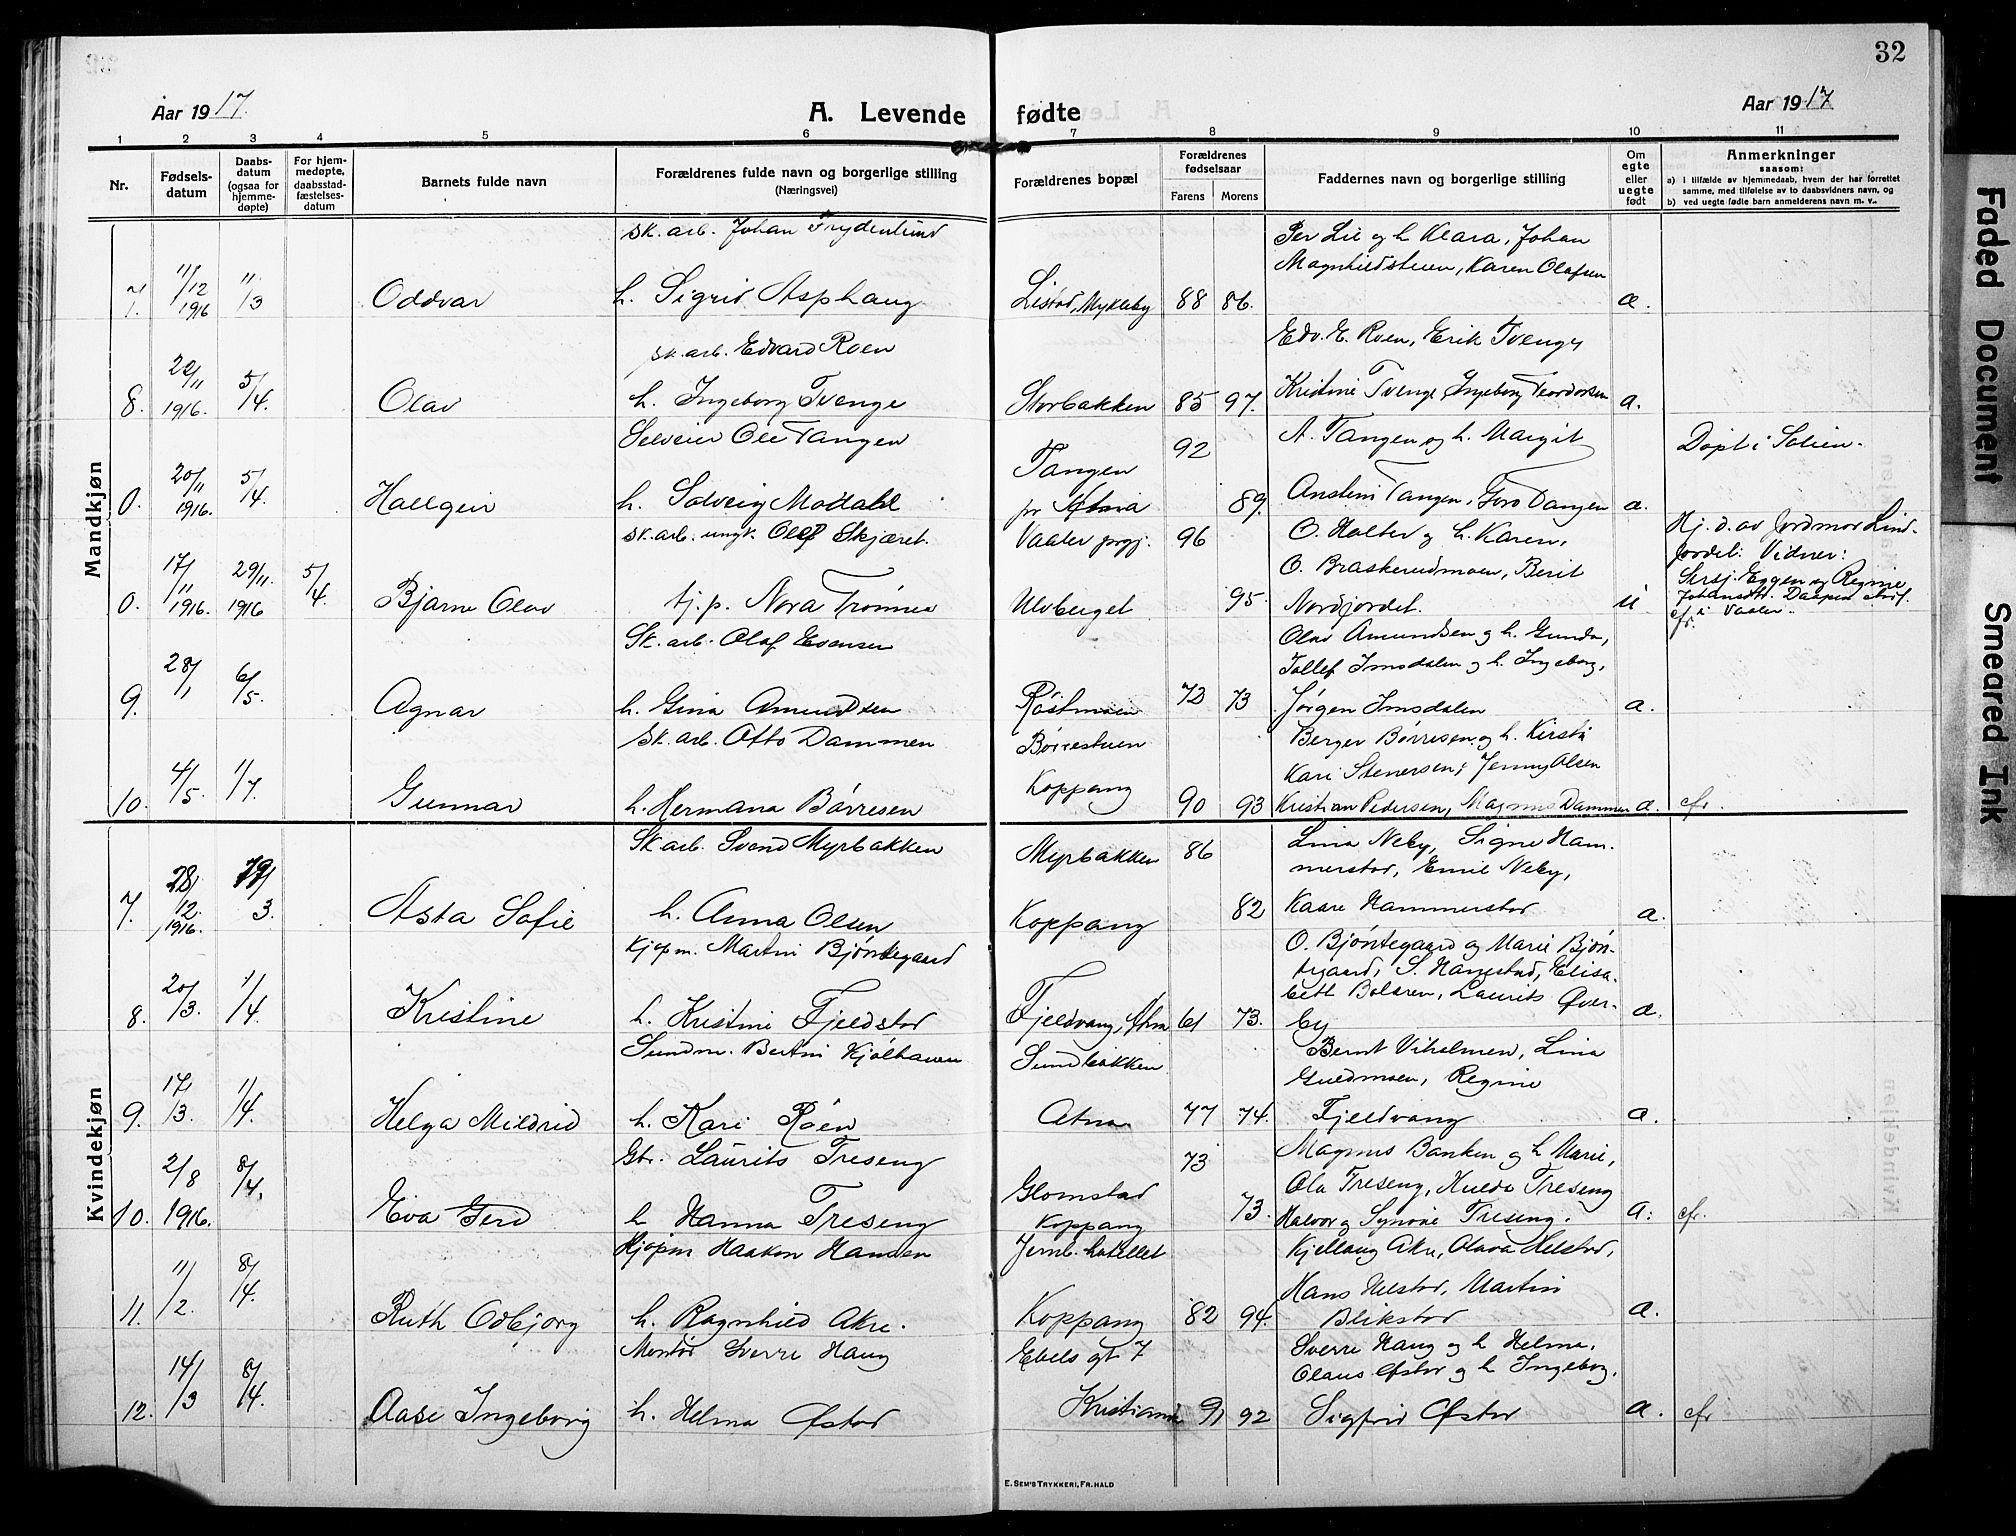 32
Aar 1917.
A. Levende fødte
Aar 1917
1 2 3 4 5 6 7 8 9 10 11
Nr.
Fødsels-
datum
Daabs-
datum
(ogsaa for
hjemme-
døpte)
For hjem-
medøpte,
daabsstad-
fæstelses-
datum
Barnets fulde navn
Forældrenes fulde navn og borgerlige stilling
(Næringsvei)
Forældrenes bopæl
Forældrenes
fødselsaar
Farens Morens
Faddernes navn og borgerlige stilling
Om
egte
eller
uegte
født
Anmerkninger
saasom:
a) i tilfælde av hjemmedaab, hvem der har forrettet
samme, med tilføielse av to daabsvidners navn, og
b) ved uegte fødte barn anmelderens navn m. v.
Mandkjøn
sk. arb. Johan Frydenlund
Per Lie og h. Klara, Johan
Magnhildstuen, Karen Olafsen
11/12 1916 11/3 Oddvar h. Sigrid Asphaug Listad, Mykleby 88 86. a.
sk. arb. Edvard Roen
Edv. E. Roen, Erik Tvenge
8. 1916. 5/4. Olav h. Ingeborg Tvenge Storbakken 85 97. Kristine Tvenge, Ingeborg Teordorsen a.
Selveier Ole Tangen
Tangen 92 A. Tangen og h. Margit Døpt i Solien.
0. 20/11 1916. 5/4. Hallgeir h. Solveig Modahl pr Atna 89. Anstein Tangen, Tangen a.
sk. arb. ungk. Olaf Skjæret. Vaaler prgj. 96 O. Holter og h. Karen,
O. Braskerudmoen, Berit
0. 17/11 1916. 29/11. 1916 5/4. Bjarne Olav tj. p. Nora Trønnes Ulvberget 95. Nordjordet. u
Hj. d. av Jordmor Lind-
jordet. Vidner:
Eggen og Regine
i Vaaler.
cfr.
Sk. arb. Olaf Evensen
Olav Amundsen og h. Gunda,
Tollef Imsdalen og h. Ingeborg,
9. 28/1 6/5. Agnar h. Gina Amundsen Røstmoen 72 73 Jørgen Imsdalen a.
sk. arb. Otto Dammen Børrestuen Berger Børresen og h. Kirsti
Kari Stenersen, Jenny Olsen
10. 4/5. 1/7. Gunnar h. Hermana Børresen Koppang 90 93 Kristian Pedersen, Magnus Dammen a. cfr.
Kvindekjøn
Sk. arb. Svend Myrbakken Myrbakken 86 Lina Neby, Signe Ham-
merstad, Emil Neby,
7. 28/12. 1916. Asta Sofie h. Anna Olsen Koppang 82 Kaare Hammerstad a.
Kjøpm. Martin Bjøntegaard O. Bjøntegaard og Marie Bjøn-
tegaard, S. Hanestad, Elisa-
beth Boleren, Laurits Øver-
8. 20/3. 1/4. Kristine h. Kristine Fjeldstad Fjeldvang, Atna 61 73. by a.
Sundm. Bertin Kjølhauen Sundbakken Bernt Vilhelmsen, Lina
Guldmoen, Regine
9. 17/3. 1/4. Helga Mildrid h. Kari Røen Atna 77 74. Fjeldvang a.
Gbr. Laurits Treseng 73 Magnus Banken og h. Marie,
Ola Treseng, Hulda Treseng
10. 2/8 1916. 8/4. Eva Gerd h. Hanna Treseng Glomstad Koppang 73. Halvor og Synøve Treseng. a. cfr.
Kjøpm Haakon Hansen Jernb. hotellet Kjellaug Akre, Olava Helstad,
Hans Helstad, Martin
11. 11/2. 8/4. Ruth Odbjørg h. Ragnhild Akre. Koppang 82 94. Blikstad a.
Montør Sverre Haug Ebels gt 7 Sverre Haug og h. Helma.
Olaus Østad og h. Ingeborg.
12. 14/3 8/4. Aase Ingeborg h. Helma Østad Kristiania 91 92 Sigfrid Østad a. cfr
E. SEM'S TRYKKERI, FR. HALD
Faded Document
Smeared Ink